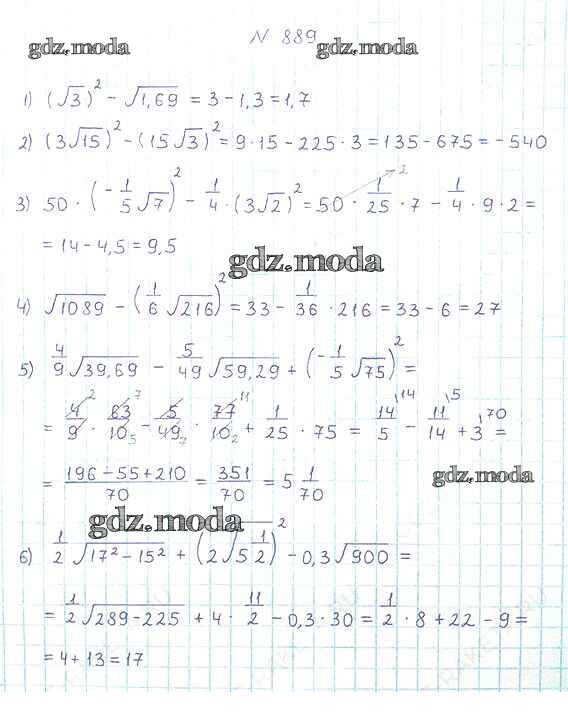 N 889
gdz.moda gdz.moda
1) (√3)² − √1,69 = 3 − 1,3 = 1,7
2) (3√15)² − (15√3)² = 9·15 − 225·3 = 135 − 675 = −540
3) 50 · (−1/5 √7)² − 1/4 · (3√2)² = 50 · 1/25 · 7 − 1/4 · 9 · 2 =
2
= 14 − 4,5 = 9,5
gdz.moda
4) √1089 − (1/6 √216)² = 33 − 1/36 · 216 = 33 − 6 = 27
5) 4/9 √39,69 − 5/49 √59,29 + (−1/5 √75)² =
= 4/9 · 63/10 − 5/49 · 77/10 + 1/25 · 75 = 14/5 \14 − 11/14 \5 + 3 \70 =
2 7 11
5 7 2
= (196 − 55 + 210)/70 = 351/70 = 5 1/70
gdz.moda
gdz.moda
6) 1/2 √17² − 15² + (2√5 1/2)² − 0,3√900 =
= 1/2 √289 − 225 + 4 · 11/2 − 0,3 · 30 = 1/2 · 8 + 22 − 9 =
= 4 + 13 = 17